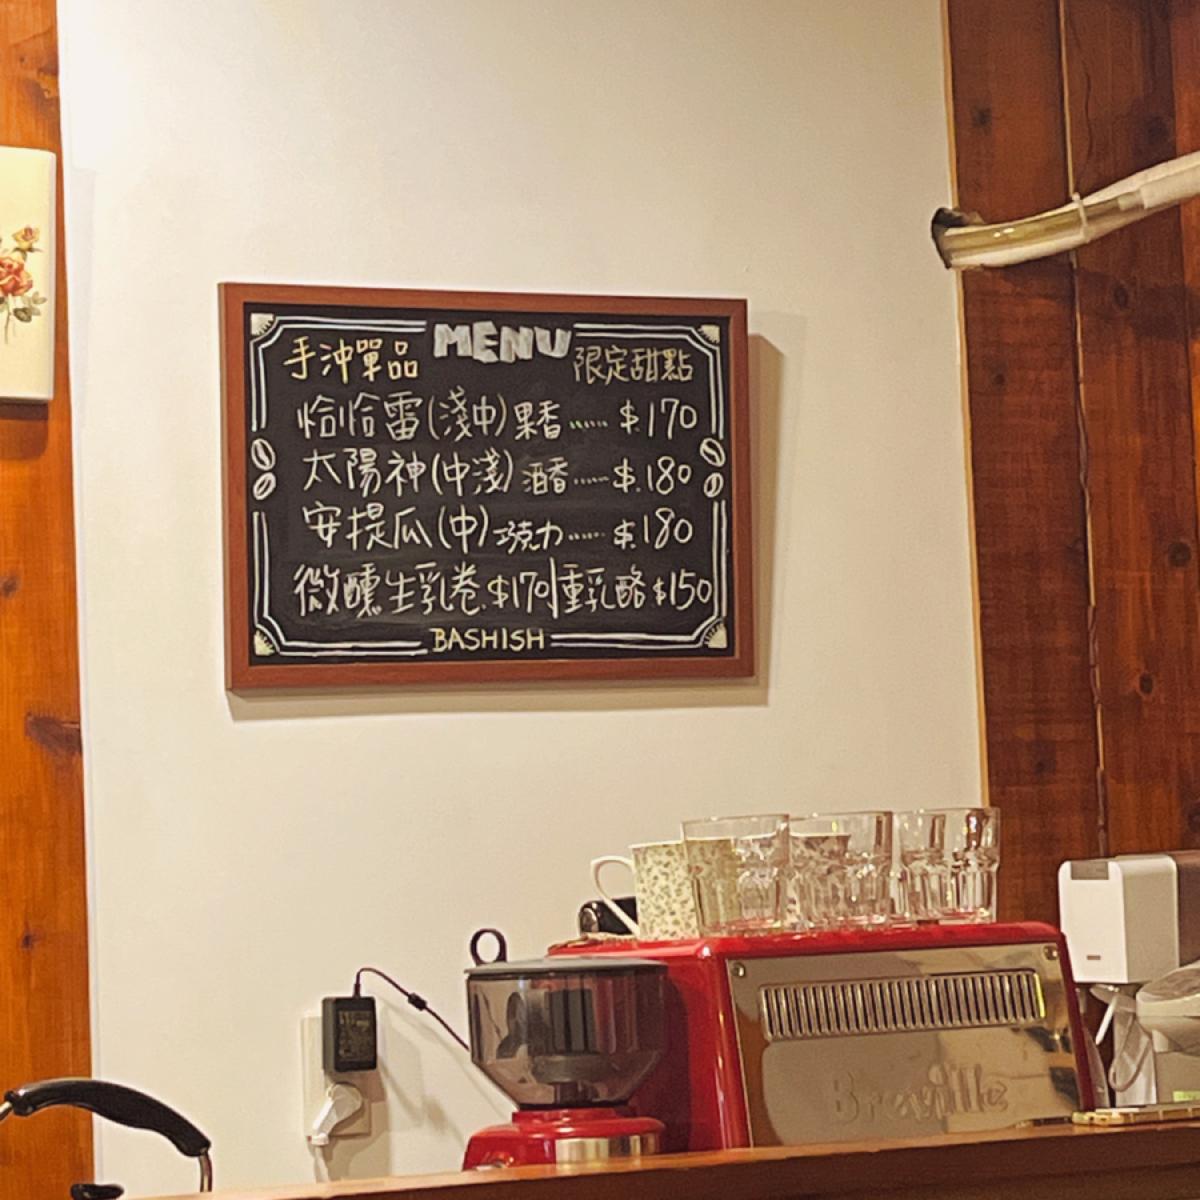 MENU
手沖單品 限定甜點
恰恰雷(淺中)果香...... $.170
太陽神(中淺)酒香...... $.180
安提瓜(中)巧克力...... $.180
微醺生乳卷.$170|重乳酪 $150
BASHISH
Breville